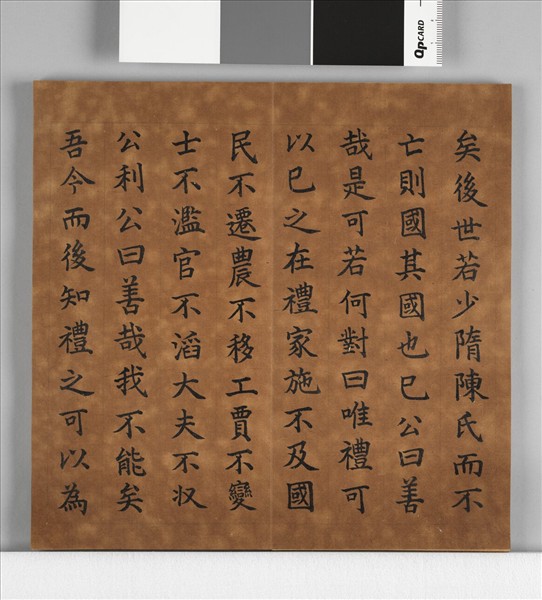 矣後世若少隋陳氏而不
亡則國其國也已公曰善
哉是可若何對曰唯禮可
以已之在禮家施不及國
民不遷農不移工賈不變
士不濫官不滔大夫不収
公利公曰善哉我不能矣
吾今而後知禮之可以為
QpCARD